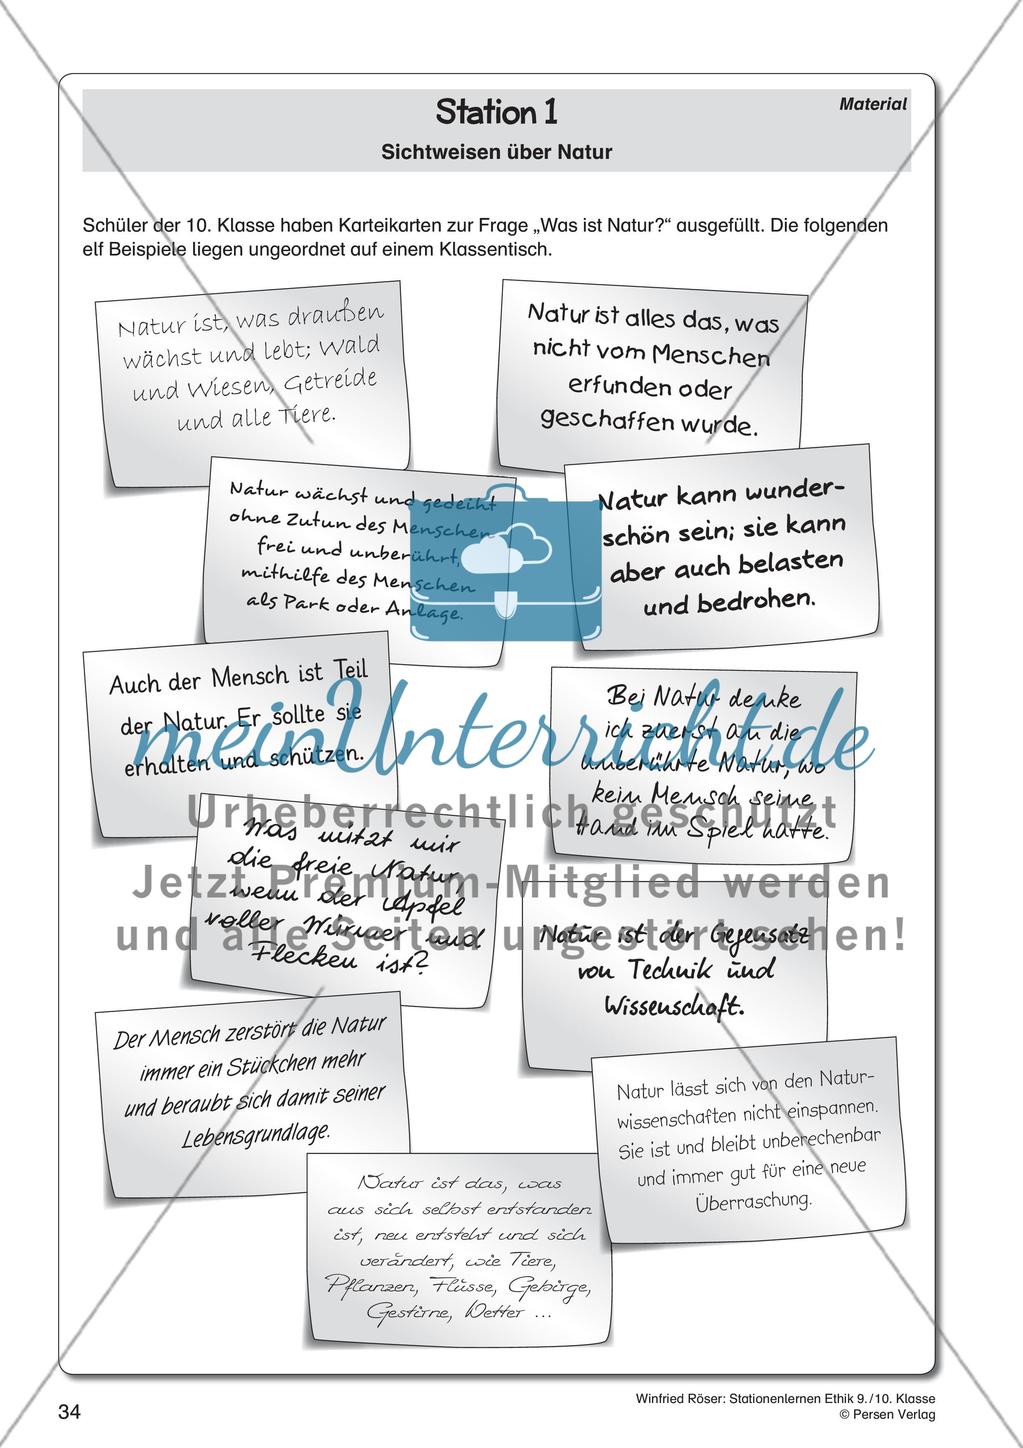 Station 1
Material
Sichtweisen über Natur
Schüler der 10. Klasse haben Karteikarten zur Frage „Was ist Natur?“ ausgefüllt. Die folgenden
elf Beispiele liegen ungeordnet auf einem Klassentisch.
Natur ist, was draußen
wächst und lebt; Wald
und Wiesen, Getreide
und alle Tiere.
Natur ist alles das, was
nicht vom Menschen
erfunden oder
geschaffen wurde.
Natur wächst und gedeiht
ohne Zutun des Menschen
frei und unberührt,
mithilfe des Menschen
als Park oder Anlage.
Natur kann wunder-
schön sein; sie kann
aber auch belasten
und bedrohen.
Auch der Mensch ist Teil
der Natur. Er sollte sie
erhalten und schützen.
Bei Natur denke
ich zuerst an die
unberührte Natur, wo
kein Mensch seine
Hand im Spiel hatte.
meinUnterricht.de
Urheberrechtlich geschützt
Jetzt Premium-Mitglied werden
und alle Seiten ungestört sehen!
Was nützt mir
die freie Natur,
wenn der Apfel
voller Würmer und
Flecken ist?
Natur ist der Gegensatz
von Technik und
Wissenschaft.
Der Mensch zerstört die Natur
immer ein Stückchen mehr
und beraubt sich damit seiner
Lebensgrundlage.
Natur lässt sich von den Natur-
wissenschaften nicht einspannen.
Sie ist und bleibt unberechenbar
und immer gut für eine neue
Überraschung.
Natur ist das, was
aus sich selbst entstanden
ist, neu entsteht und sich
verändert, wie Tiere,
Pflanzen, Flüsse, Gebirge,
Gestirne, Wetter ...
34
Winfried Röser: Stationenlernen Ethik 9./10. Klasse
© Persen Verlag